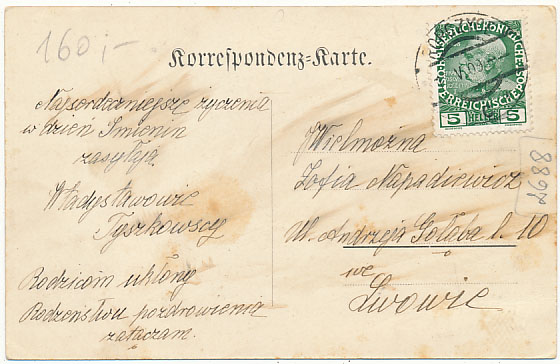 160.-
Korrespondenz-Karte.
Najserdeczniejsze życzenia
w dzień Imienin
zasyłają
Władysławowie
Tyszkowscy
Rodzicom ukłony
Rodzeństwu pozdrowienia
załączam.
KAISERLICHE KÖNIGLICHE
ÖSTERREICHISCHE POST
5 HELLER 5
Wielmożna
Zofia Napadiewicz
Ul. Andrzeja Gołąba l. 10
we
Lwowie